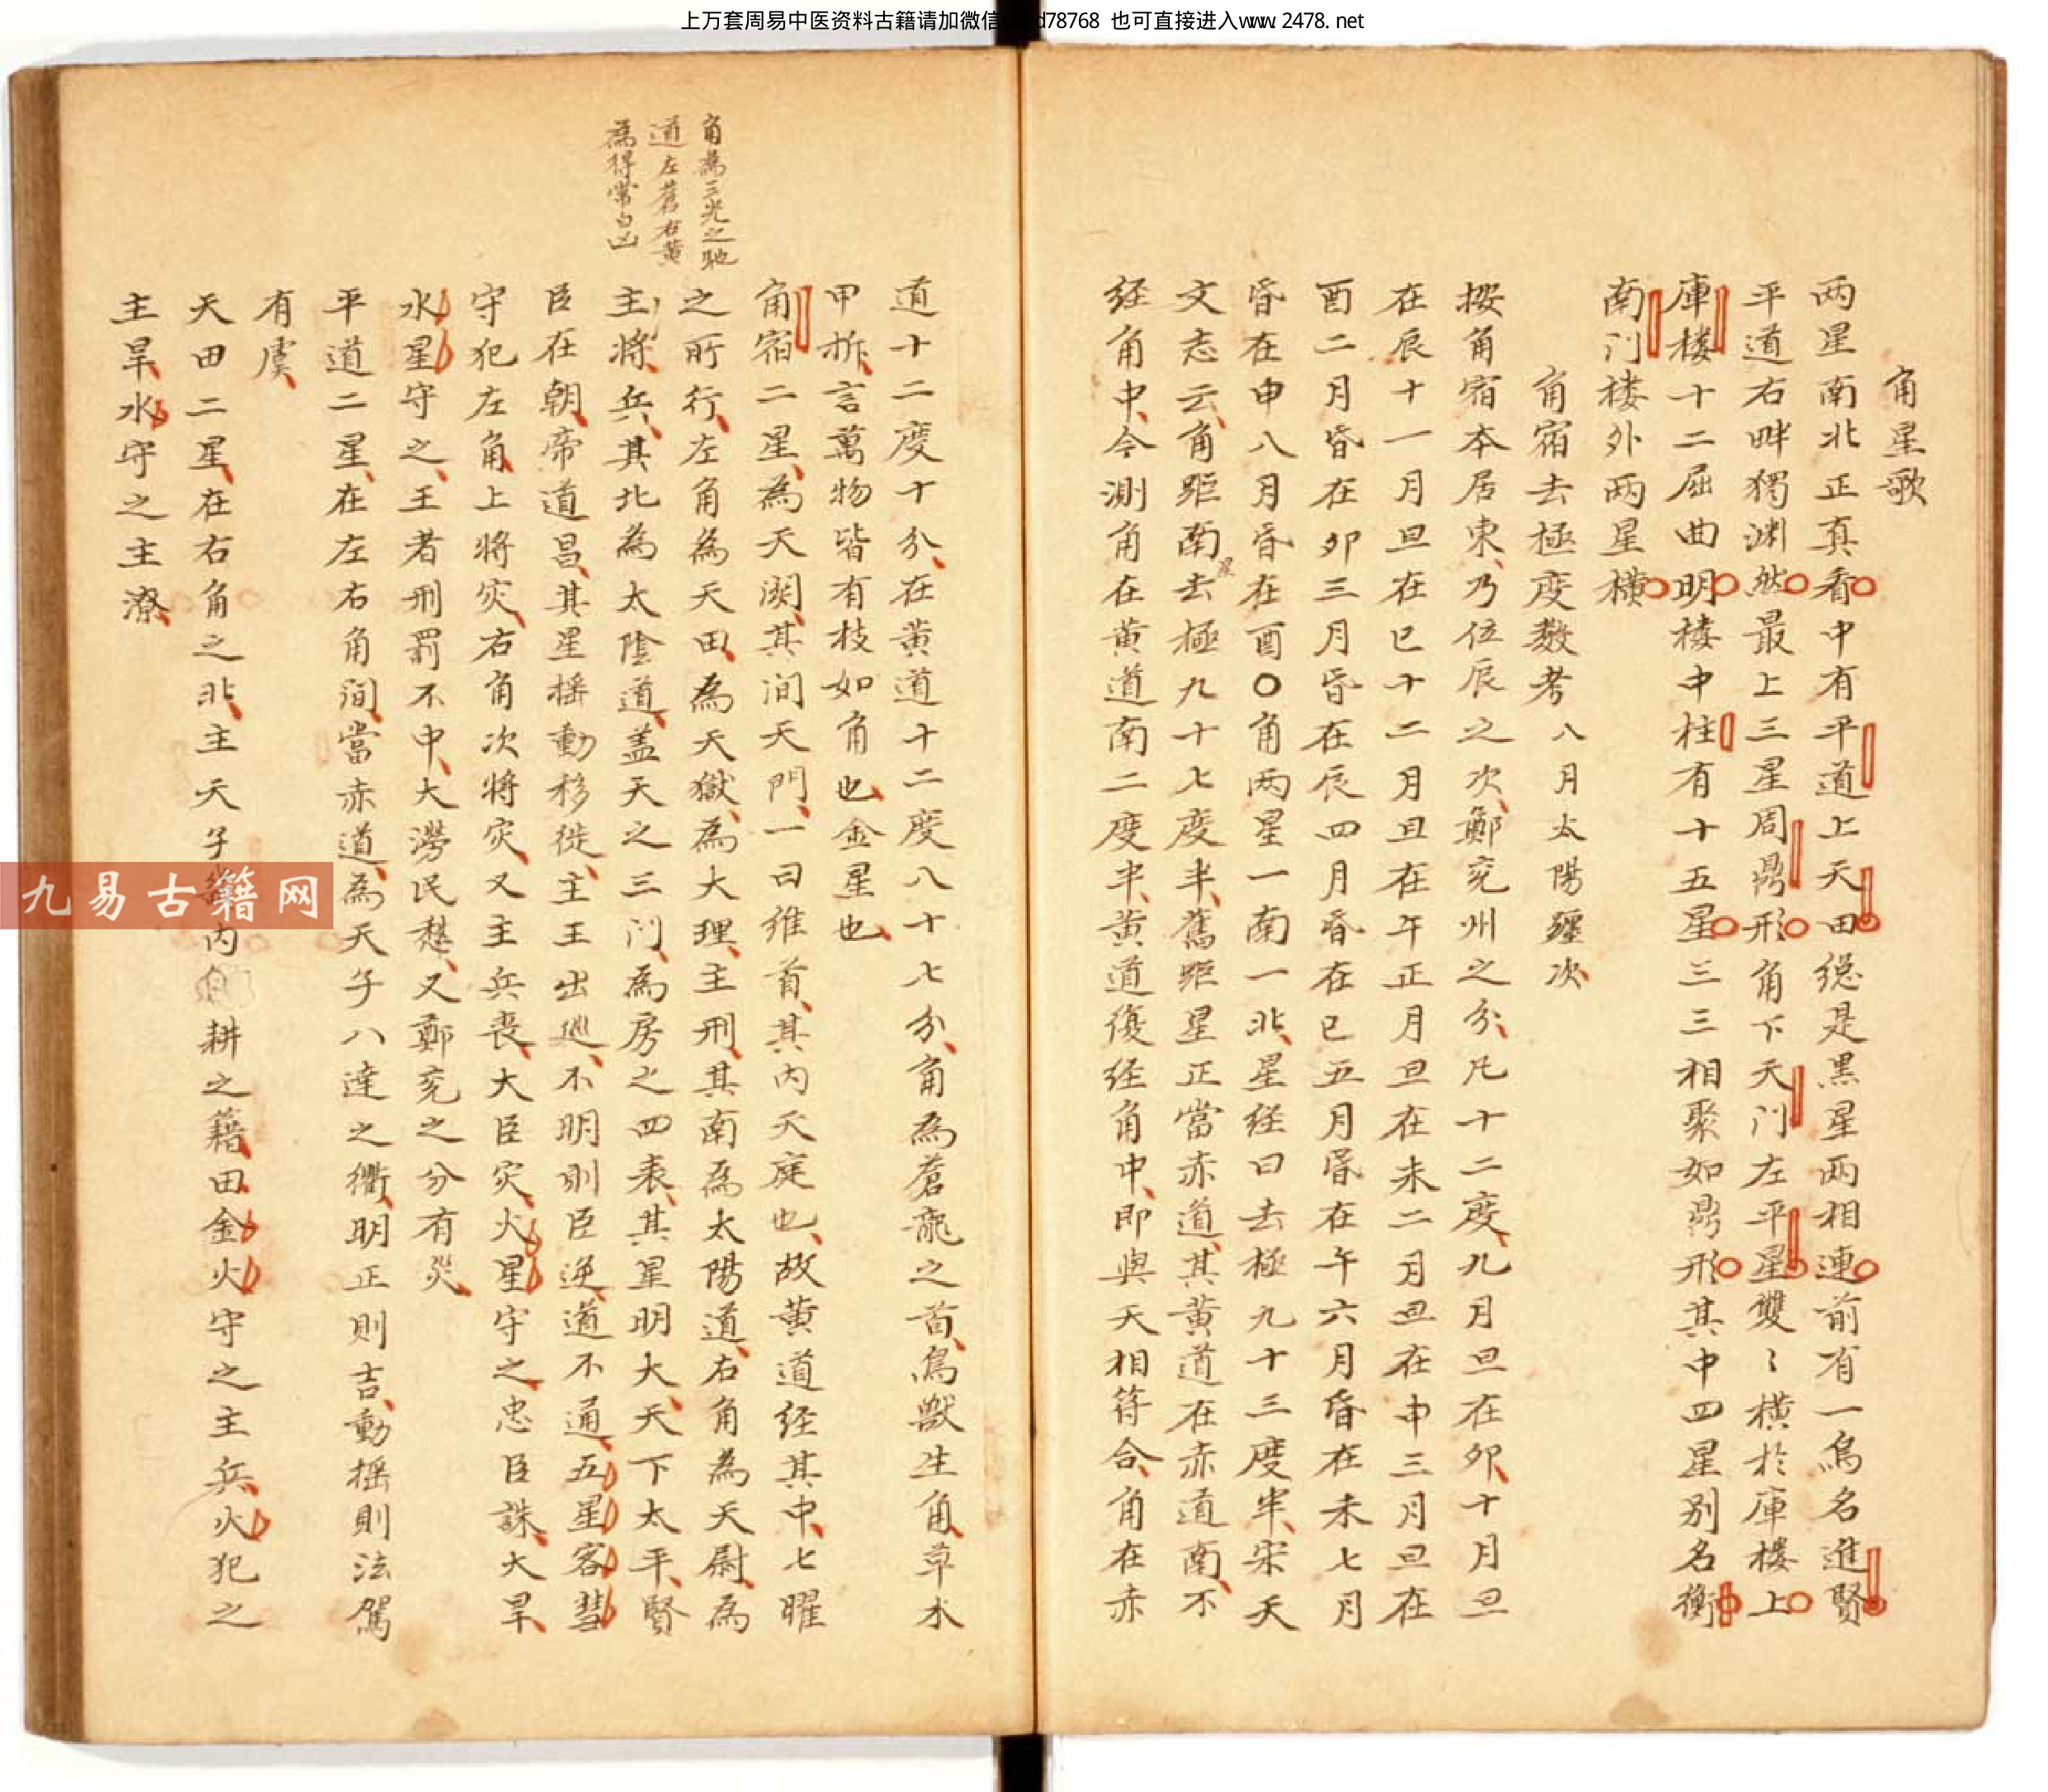 上万套周易中医资料古籍请加微信 d78768 也可直接进入www.2478.net
角星歌
两星南北正真看中有平道上天田緫是黑星两相連前有一烏名進賢
平道右畔獨渊然最上三星周鼎形角下天门左平星雙〻横於庫楼上
庫楼十二屈曲明楼中柱有十五星三三相聚如鼎形其中四星别名衡
南门楼外两星横
角宿去極度数考 八月太陽躔次
按角宿本居東乃位辰之次鄭兖州之分凡十二度九月旦在卯十月旦
在辰十一月旦在巳十二月旦在午正月旦在未二月旦在申三月旦在
酉二月昏在卯三月昏在辰四月昏在巳五月昏在午六月昏在未七月
昏在申八月昏在酉○角两星一南一北星经曰去極九十三度半宋天
文志云角距南星去極九十七度半舊距星正當赤道其黄道在赤道南不
经角中今測角在黄道南二度半黄道復经角中即與天相符合角在赤
道十二度十分在黄道十二度八十七分角為蒼龍之首鳥獸生角草木
甲拆言萬物皆有枝如角也金星也
角宿二星為天闕其间天門一曰维首其内天庭也故黄道经其中七曜
之所行左角為天田為天獄為大理主刑其南為太陽道右角為天尉為
主將兵其北為太陰道盖天之三门為房之四表其星明大天下太平賢
臣在朝帝道昌其星摇動移徙主王出巡不明則臣逆道不通五星客彗
守犯左角上將灾右角次將灾又主兵喪大臣灾火星守之忠臣誅大旱
水星守之王者刑罰不中大澇民愁又鄭兖之分有災
平道二星在左右角间當赤道為天子八達之衢明正則吉動摇則法駕
有虞
天田二星在右角之北主天子内自耕之籍田金火守之主兵火犯之
主旱水守之主潦
角為三光之馳
道左蒼右黄
為得常白凶
九易古籍网